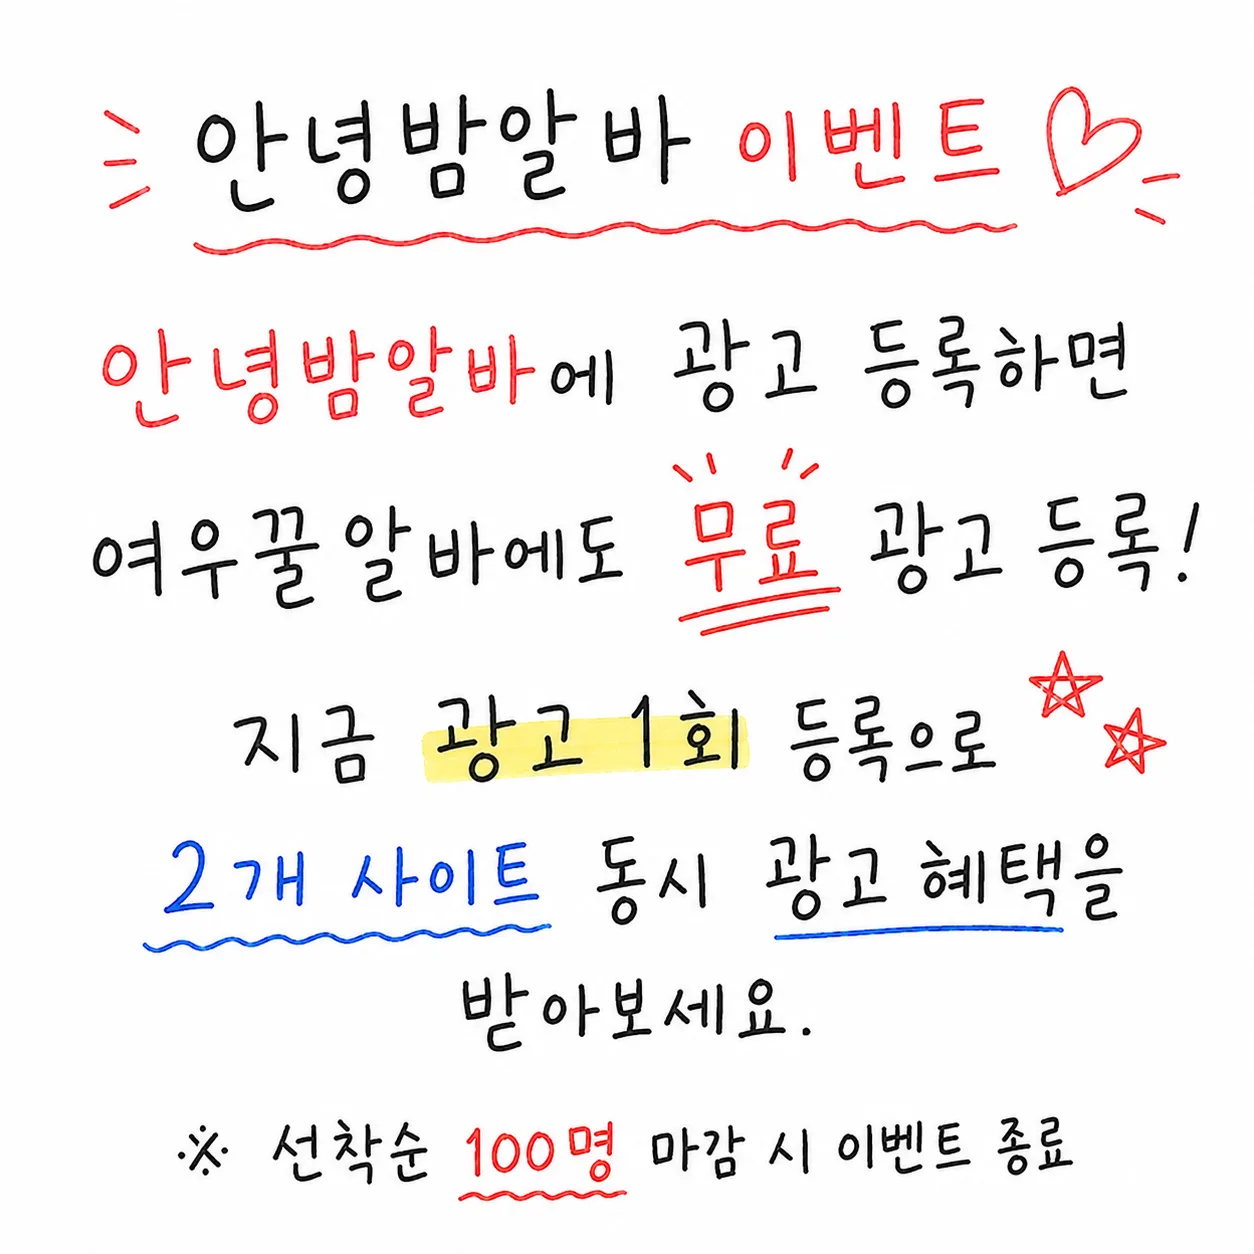 안녕밤알바 이벤트
안녕밤알바에 광고 등록하면
여우꿀알바에도 무료 광고 등록!
지금 광고 1회 등록으로
2개 사이트 동시 광고 혜택을
받아보세요.
※ 선착순 100명 마감 시 이벤트 종료